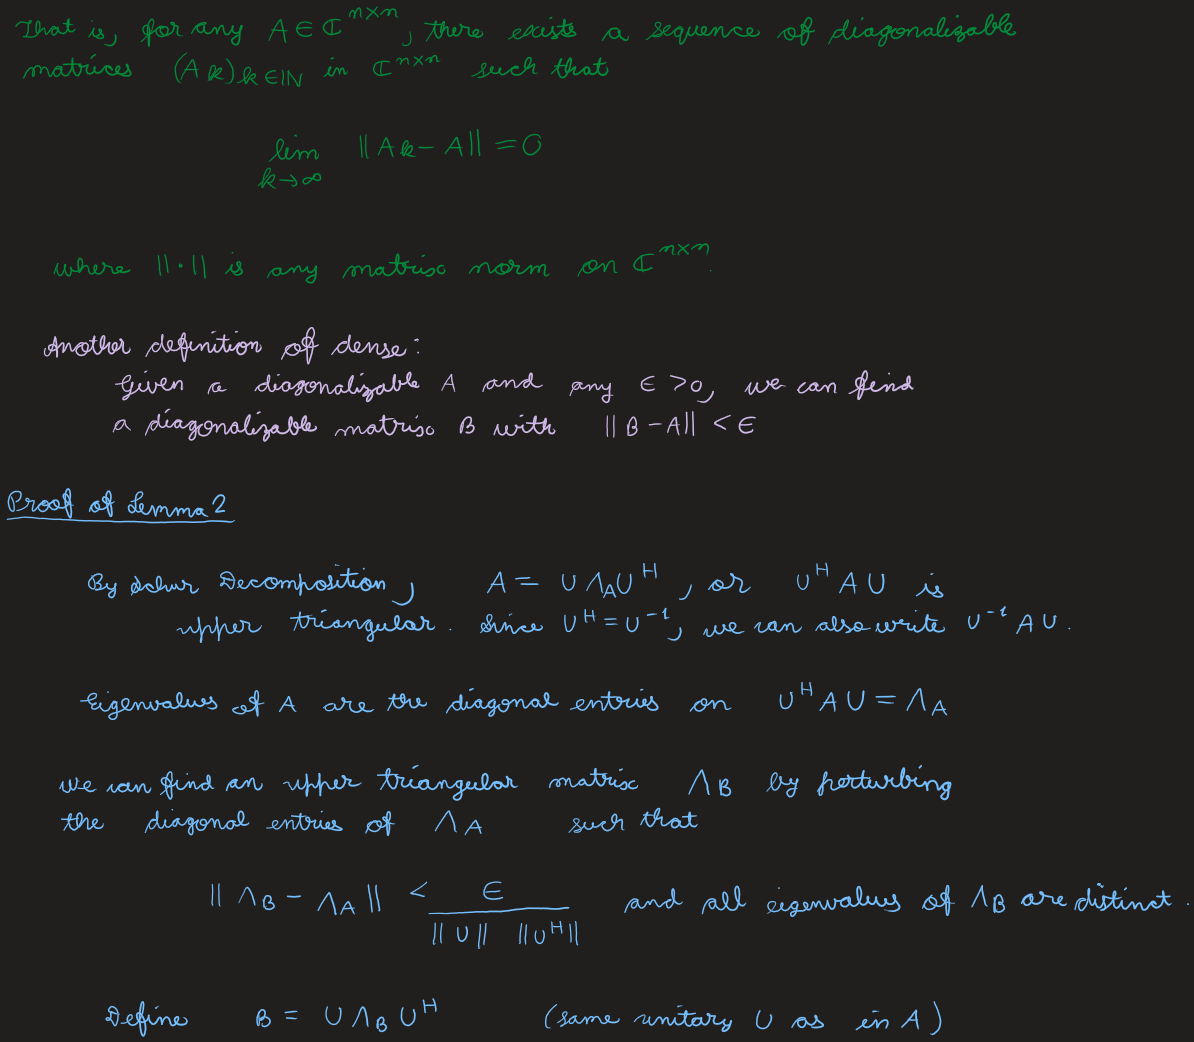 That is, for any A ∈ ℂ^{n×n}, there exists a sequence of diagonalizable
matrices (A_k)_{k∈ℕ} in ℂ^{n×n} such that
lim_{k→∞} ||A_k - A|| = 0
where ||·|| is any matrix norm on ℂ^{n×n}.
Another definition of dense:
Given a diagonalizable A and any ϵ > 0, we can find
a diagonalizable matrix B with ||B - A|| < ϵ
Proof of Lemma 2
By Schur Decomposition, A = U Λ_A U^H, or U^H A U is
upper triangular. Since U^H = U^{-1}, we can also write U^{-1} A U.
Eigenvalues of A are the diagonal entries on U^H A U = Λ_A
we can find an upper triangular matrix Λ_B by perturbing
the diagonal entries of Λ_A such that
||Λ_B - Λ_A|| < ϵ / (||U|| ||U^H||) and all eigenvalues of Λ_B are distinct.
Define B = U Λ_B U^H (same unitary U as in A)